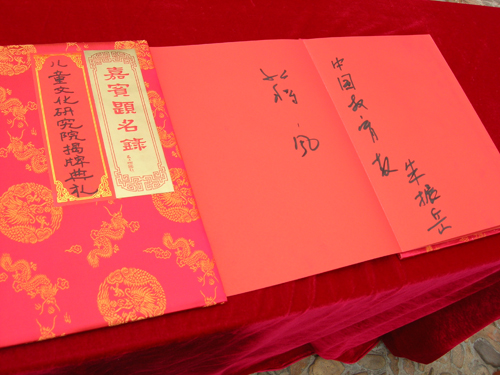 嘉賓題名錄
儿童文化研究院揭牌典礼
风
中国教育报
朱振岳